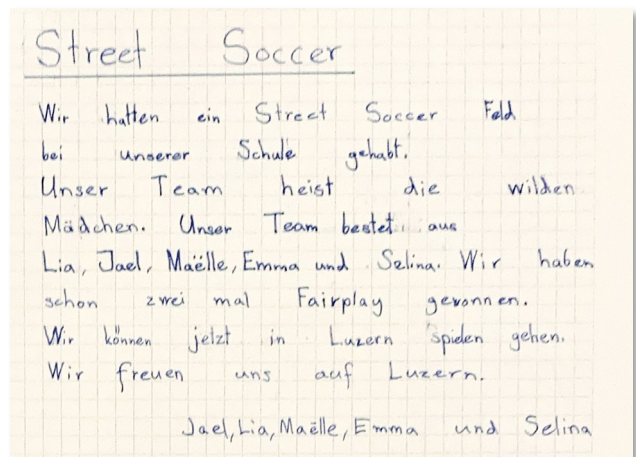 Street Soccer
Wir hatten ein Street Soccer Feld
bei unserer Schule gehabt.
Unser Team heist die wilden
Mädchen. Unser Team bestet aus
Lia, Jael, Maëlle, Emma und Selina. Wir haben
schon zwei mal Fairplay gewonnen.
Wir können jetzt in Luzern spielen gehen.
Wir freuen uns auf Luzern.
Jael, Lia, Maëlle, Emma und Selina